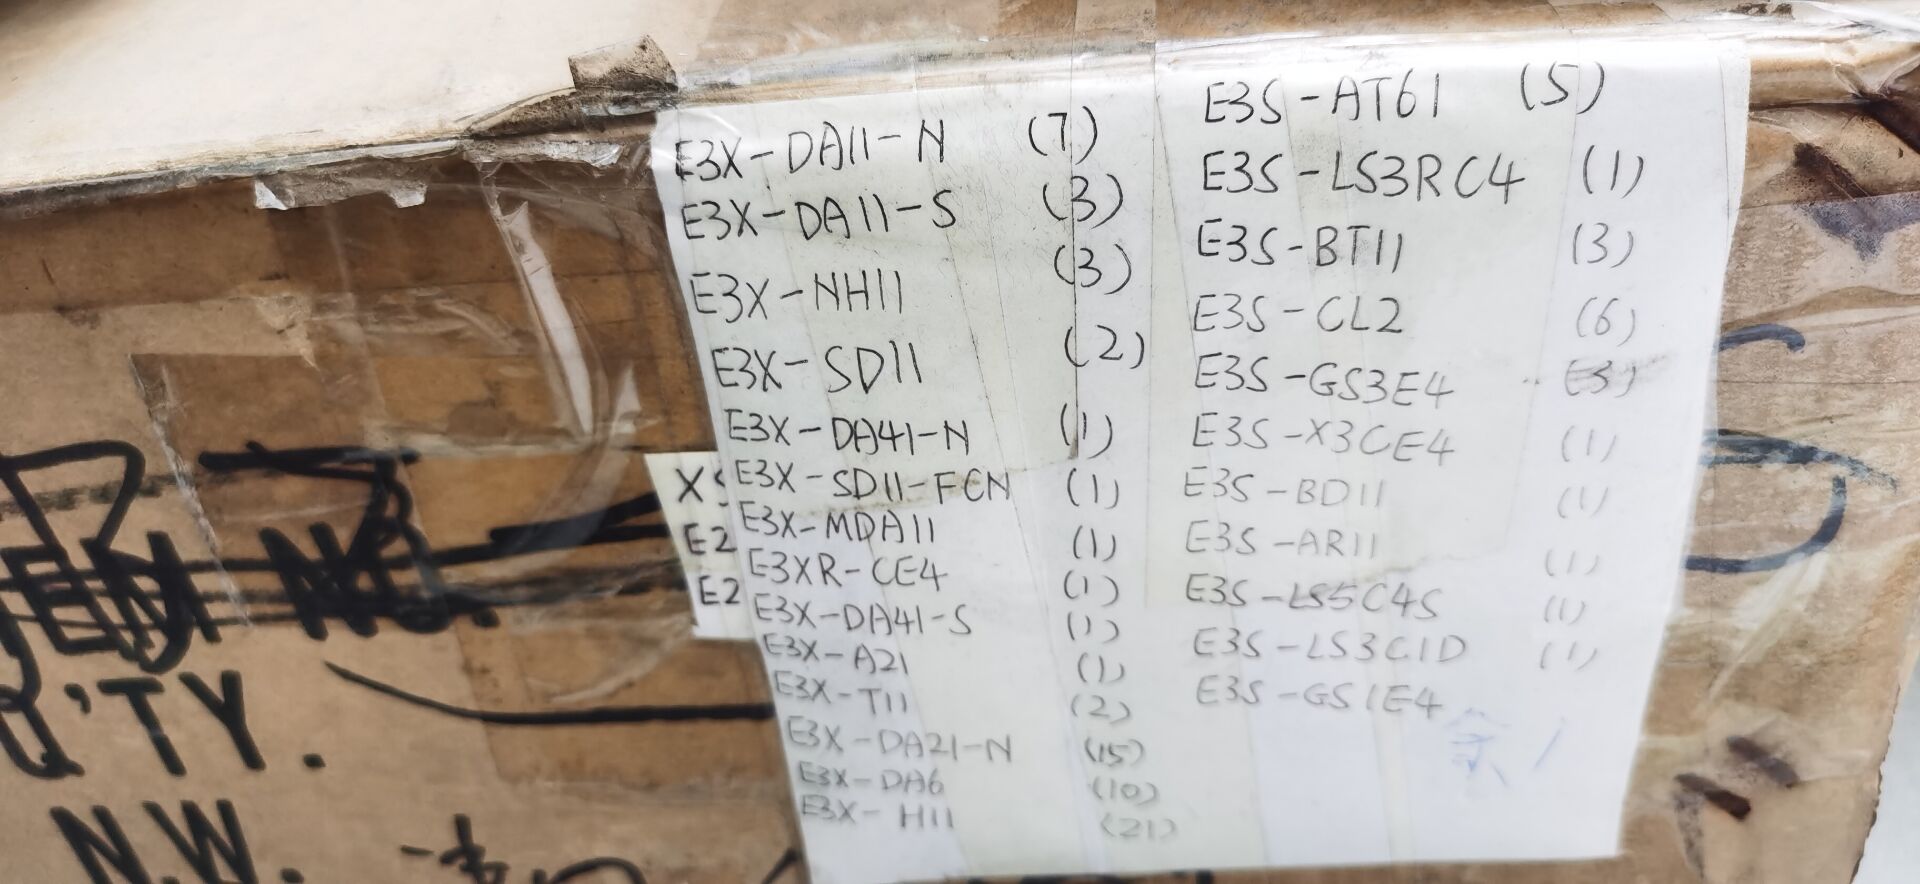 E3X-DA11-N (7)
E3X-DA11-S (3)
E3X-NH11 (3)
E3X-SD11 (2)
E3X-DA41-N (1)
E3X-SD11-FCN (1)
E3X-MDA11 (1)
E3XR-CE4 (1)
E3X-DA41-S (1)
E3X-A21 (1)
E3X-T11 (2)
E3X-DA21-N (15)
E3X-DA6 (10)
E3X-H11 (21)
E3S-AT61 (5)
E3S-LS3RC4 (1)
E3S-BT11 (3)
E3S-CL2 (6)
E3S-GS3E4
E3S-X3CE4 (1)
E3S-BD11 (1)
E3S-AR11 (1)
E3S-LS5C4S (1)
E3S-LS3C1D (1)
E3S-GS1E4
余1
E2
E2
Q'TY.
N.W.